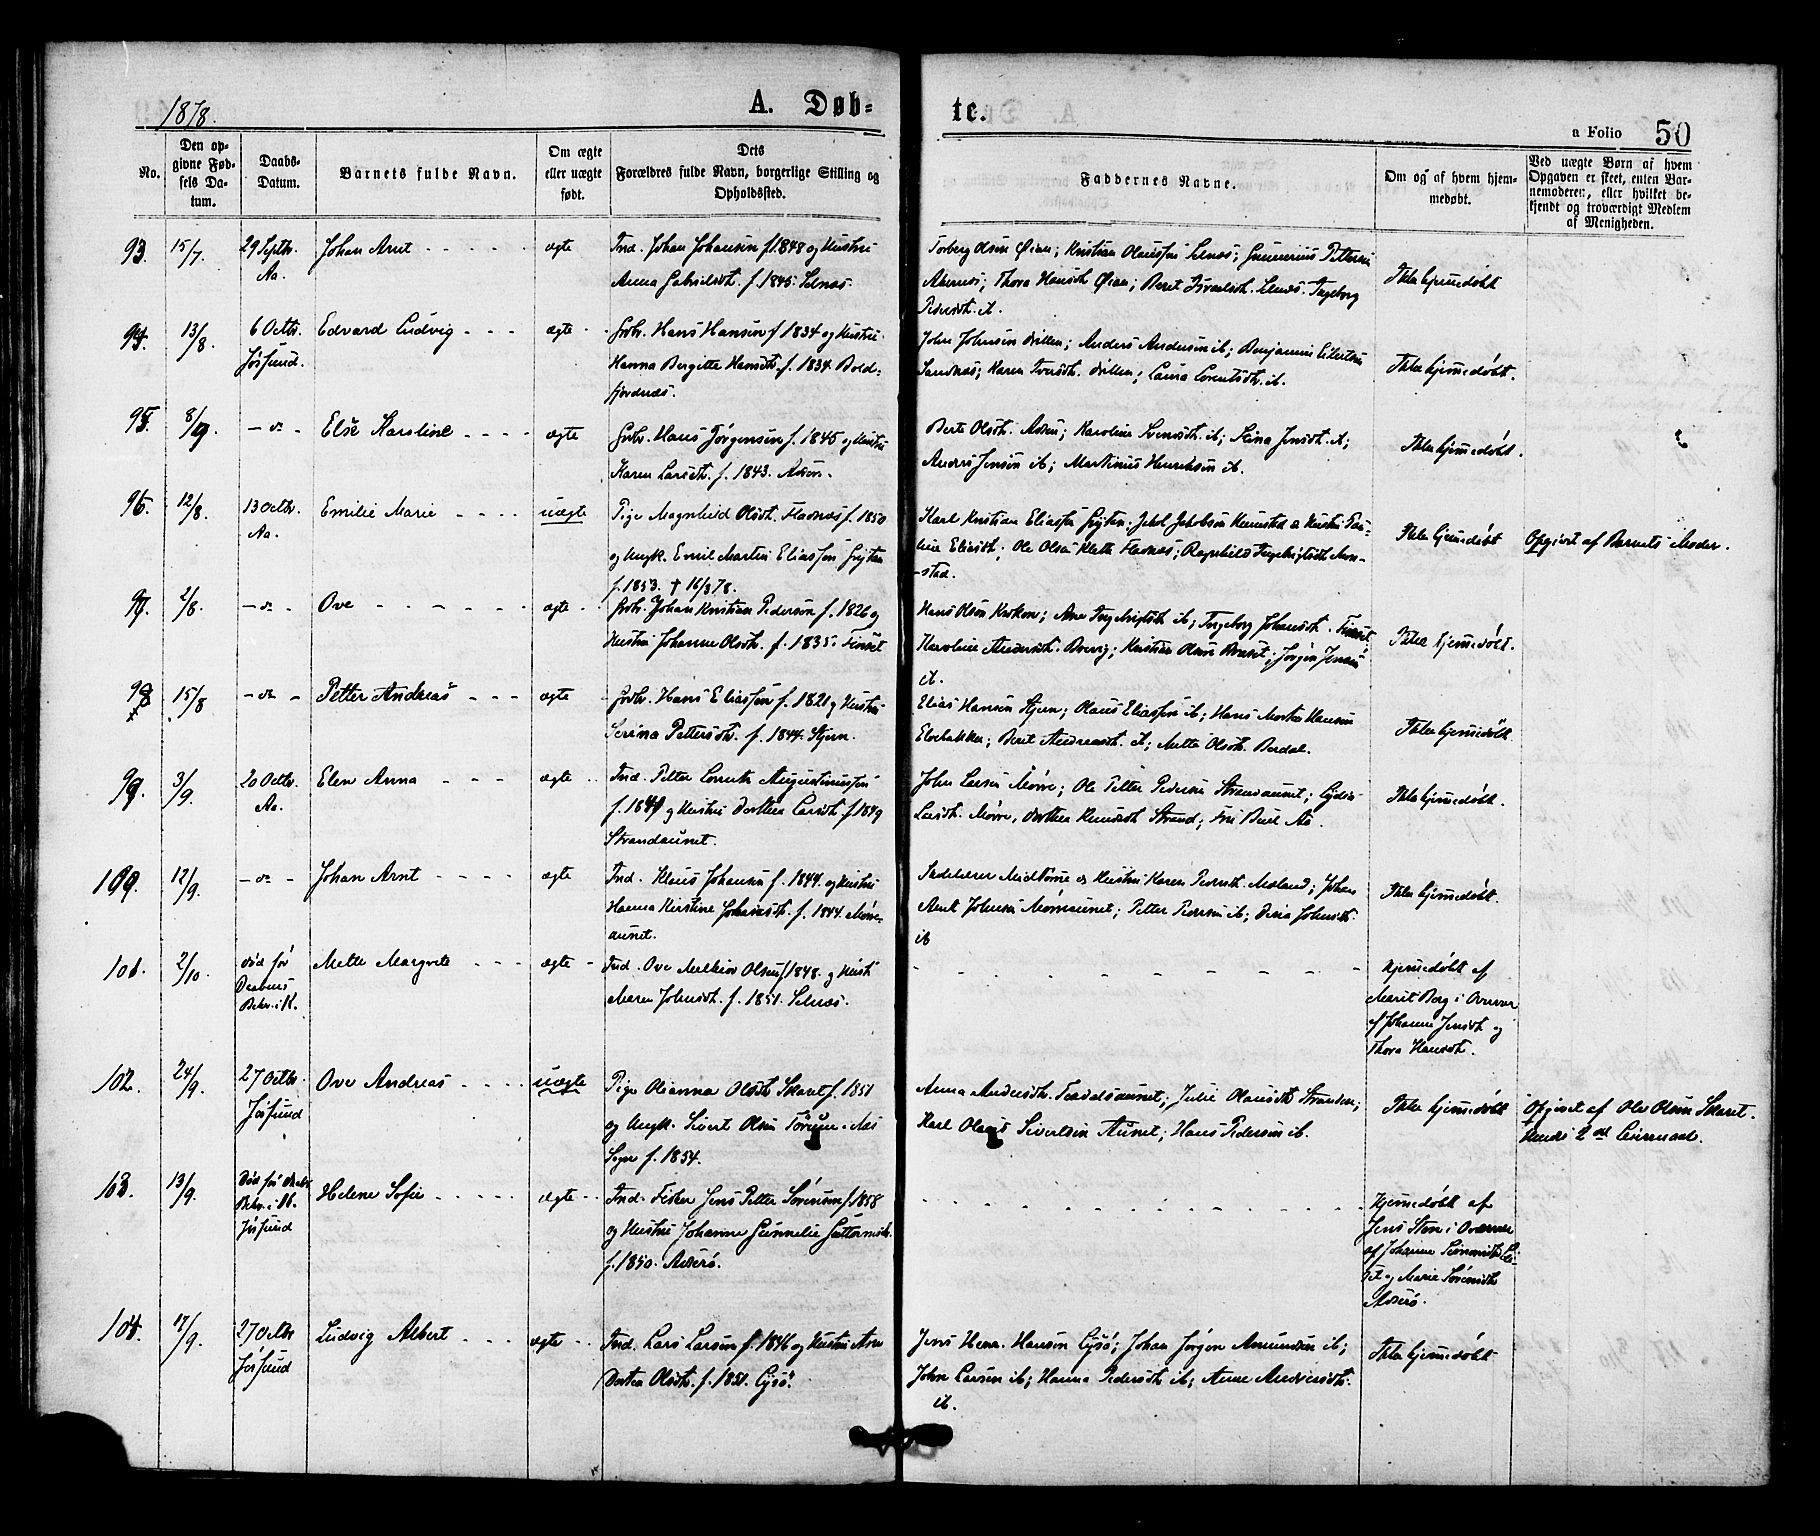 1878.
A. Døb-
te.
a Folio 50
No.
Den op-
givne Fød-
sels Da-
tum.
Daabs-
Datum.
Barnets fulde Navn.
Om ægte
eller uægte
født.
Dets
Forældres fulde Navn, borgerlige Stilling og
Opholdssted.
Faddernes Navne.
Om og af hvem hjem-
medøbt.
Ved uægte Børn af hvem
Opgaven er skeet, enten Bar-
nemoderen, eller hvilket be-
kjendt og troværdigt Medlem
af Menigheden.
93. 15/7 29 Septbr. Johan Arnt ægte Ind. Johan Johansen f. 1848 og Hustru
Aa. Anna Gabrielsdt. f. 1845. Selnæs.
Torberg Olsen Øian; Kristian Olaussen Selnæs; Gunnerius Pettersen
Thora Hansdt. Øian; Beret Israelsdt. Selnæs. Ingeborg
Pedersdt. ib.
Ikke hjemmedøbt
94. 13/8. 6 Octbr. Edvard Ludvig ægte Grbr. Hans Hansen f. 1834 og Hustru
Jøssund. Hanna Bergitte Hansdt. f. 1834. Bold-
fjordnæs.
John Johnsen; Anders Andersen ib; Benjamin Eilertsen
Sandnæs; Karen Iversdt.; Laura Lorentsdt. ib.
Ikke hjemmedøbt.
95. 8/9 - do - Else Karoline ægte Grbr. Hans Jørgensen f. 1845 og Hustru
Karen Larsdt. f. 1843.
Berte Olsdt.; Karoline Svendsdt. ib; Stina Jensdt. ib;
Anders Jensen ib; Martinus Henriksen ib.
Ikke hjemmedøbt.
96. 12/8. 13 Octbr. Emilie Marie uægte Pige Magnhild Olsdt. Fladnæs f. 1850
Aa. og Ungk. Emil Martin Eliassen
f. 1853. † 16/3 78.
Karl Kristian Eliassen; Jakob Jakobsen & Hustru Pau-
line Eliasdt; Ole Olsen Klette Fladnæs; Ragnhild Ingebrigtsdt. Mon-
stad.
Ikke hjemmedøbt Opgivet af Barnets Moder.
97. 2/8. - do - Ove ægte Grbr. Johan Kristian Pedersen f. 1826 og
Hustru Johanne Olsdt. f. 1835. Finset
Hans Olsen Krokan; Ane Ingebrigtsdt. ib; Ingeborg Johansdt. Finset
Karoline Andersdt.; Kristian Olsen; Jørgen Jensen
ib.
Ikke hjemmedøbt.
98 15/8 - do - Petter Andreas ægte Grbr. Hans Eliassen f. 1821 og Hustru
x Serina Pettersdt. f. 1844. Stjern.
Elias Hansen Stjern; Olaus Eliassen ib; Hans Morten Hansen
Elvebakken; Beret Andreasdt. ib; Mette Olsdt. Berdal.
Ikke hjemmedøbt.
99. 3/9. 20 Octbr. Elen Anna ægte Ind. Petter Lorents Augustinussen
Aa. f. 1849 og Hustru Dorthea Larsdt. f. 1849
Strandaunet.
John Larsen Mørre; Ole Petter Pedersen Strandaunet; Lydia
Larsdt. Mørre, Dorthea Knudsdt. Strand; Fru Buul Aa.
Ikke hjemmedøbt.
100. 12/9. - do - Johan Arnt ægte Ind. Klaus Johansen f. 1844. og Hustru
Hanna Kirstine Johansdt. f. 1844. Mørre-
aunet.
& Hustru Karen Pedersdt. Moland; Johan
Arnt Johnsen Mørreaunet; Petter Pedersen ib; Johnsdt.
ib
Ikke hjemmedøbt.
101. 2/10. død før Mette Margrete ægte Ind. Ove Melkior Olsen f. 1848. og Hust.
Daabens Maren Johnsdt. f. 1851. Selnæs.
Bekr. i K.
Hjemmedøbt af
Marit Berg i Overvær
af Johanne Jensdt. og
Thora Hansdt.
102. 24/9. 27 Octbr. Ove Andreas uægte Pige Olianna Olsdt. Skaret f. 1851
Jøssund og Ungk. Sivert Olsen Næs
Sogn f. 1854.
Anna Andersdt.; Julie Olausdt. Stranden;
Karl Olaus Sivertsen Aunet; Hans Pedersen ib.
Ikke hjemmedøbt Opgivet af Ole Olsen Skaret.
Hendes 2det Leiermaal.
103. 13/9. Død før Daab. Helene Sofie ægte Ind. Fisker Jens Petter Sørensen f. 1858
Bekr. i K. og Hustru Johanne Gunnelie Guttormsdt.
Jøssund f. 1850.
Hjemmedøbt af
Jens Sten i Overvær
af Johanne
og Marie Sørensdt.
104. 17/9. 27 Octbr Ludvig Albert ægte Ind. Lars Larsen f. 1846 og Hustru Ane
Jøssund Dortea Olsdt. f. 1851. Lysø.
Jens Henr. Hansen Lysø; Johan Jørgen Amundsen ib;
John Larsen ib; Hanna Pedersdt. ib; Anne Andersdt.
ib.
Ikke hjemmedøbt